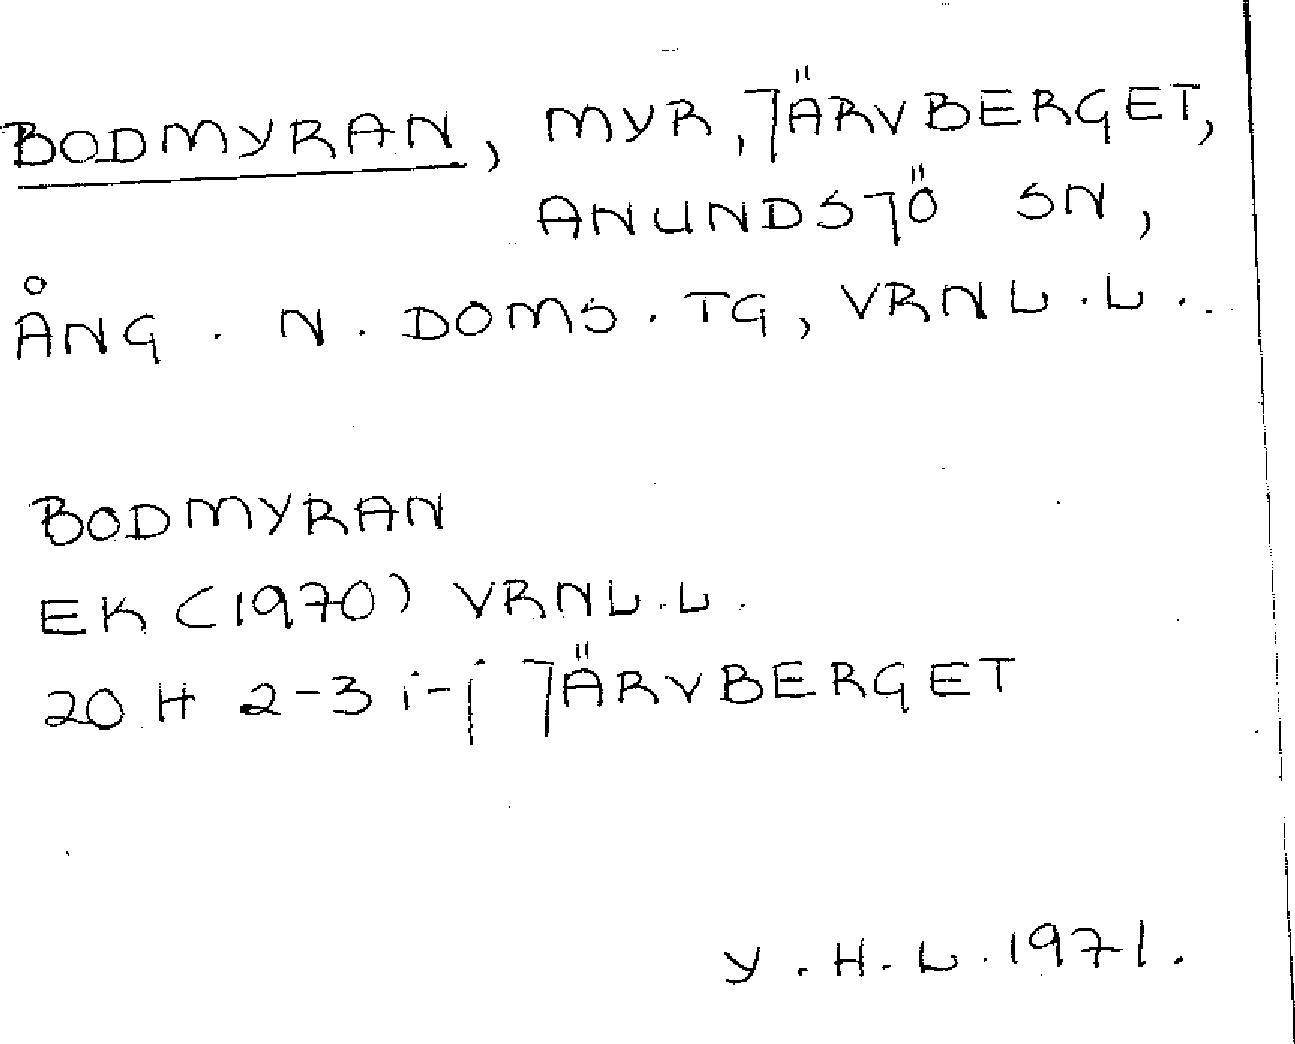 BODMYRAN, MYR, JÄRVBERGET,
ANUNDSJÖ SN,
ÅNG. N. DOMS. TG, VRNL.L.
BODMYRAN
EK (1970) VRNL.L.
20 H 2-3 i-j JÄRVBERGET
Y.H.L. 1971.